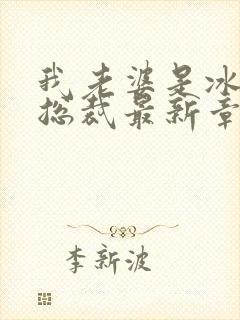 我老婆是冰
总裁最新章
李新波